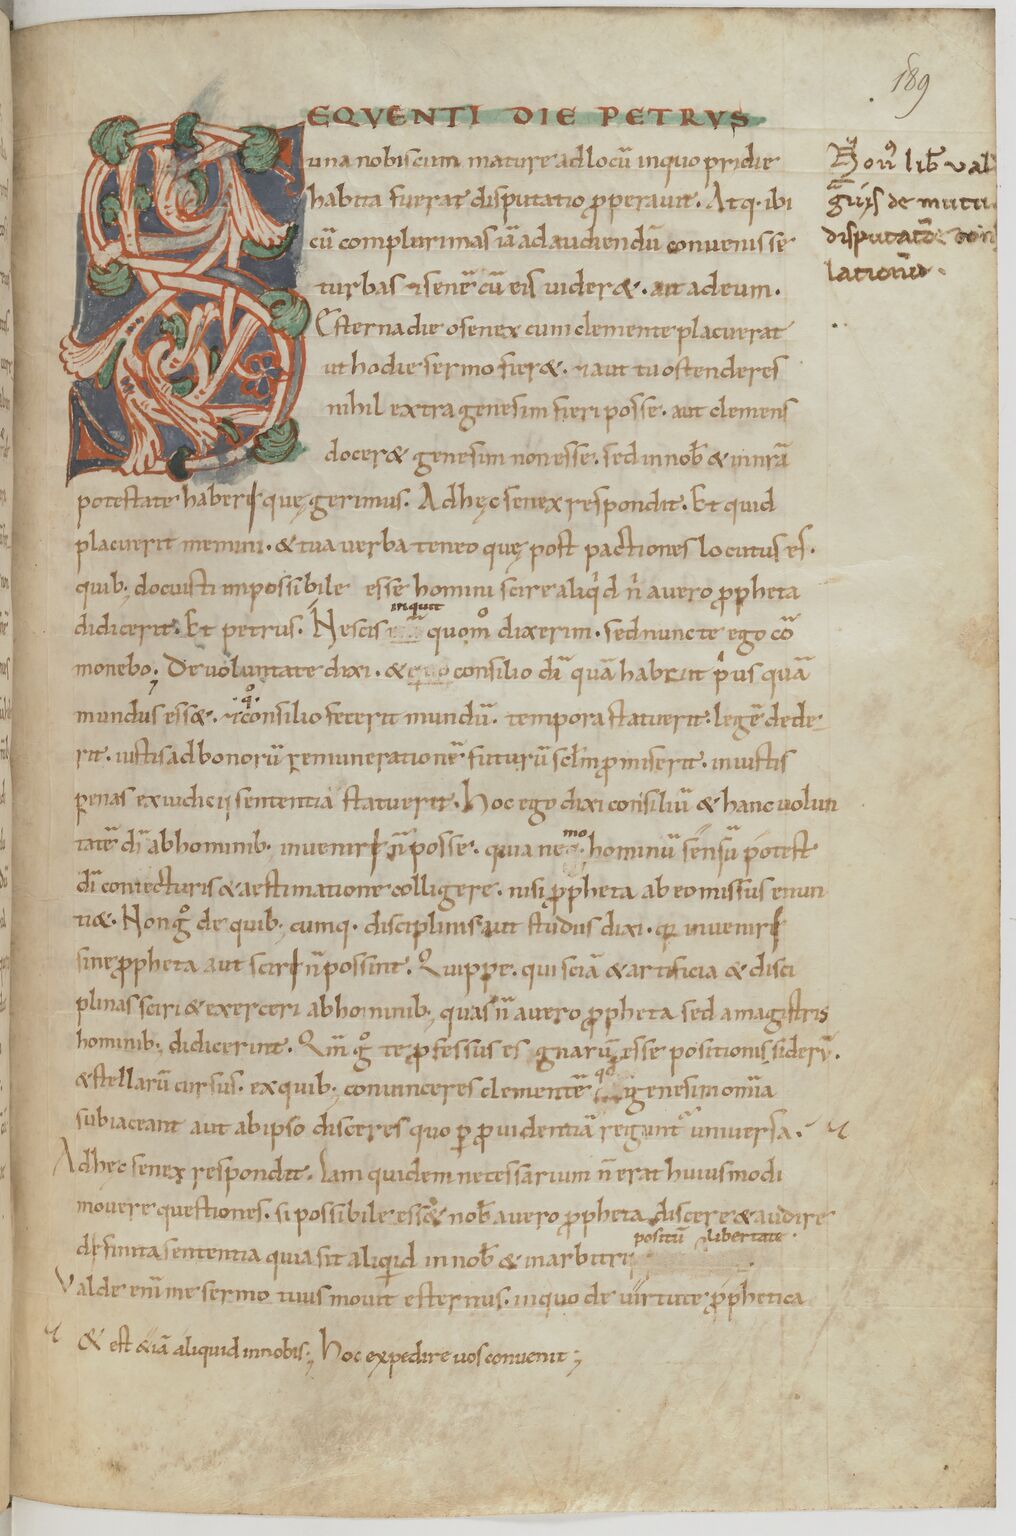 189
SEQVENTI DIE PETRVS
una nobiscum mature ad locū in quo pridie
habita fuerat disputatio ꝓperauit. Atq. ibi
cū complurimas iā ad audiendū conuenisse
turbas & senē cū eis uider&. ait ad eum.
Esterna die o senex cum clemente placuerat
ut hodie sermo fier&. & aut tu ostenderes
nihil extra genesim fieri posse. aut clemens
docer& genesim non esse. sed in nob̄ & in nrā
potestate haberi quę gerimus. Ad hęc senex respondit. Et quid
placuerit memini. & tua uerba teneo quę post pactiones locutus es.
quib; docuisti impossibile esse homini scire aliqͥd n̄ a uero ꝓpheta
didicerit. Et petrus. Nescis inquit quom̊ dixerim. sed nunc te ego cō
monebo; De uoluntate dixi. & consilio dī quā habuit pͥus quā
mundus ess&. & qͦ consilio fecerit mundū. tempora statuerit. legē dede-
rit. iustis ad bonorū remunerationē futurū sclm̄ ꝓmiserit. iniustis
penas ex iudicii sententia statuerit. Hoc ego dixi consiliū & hanc uolun
tatē dī ab hominib. inueniri n̄ posse. quia nemo hominū sensū potest
dī coniecturis & aestimatione colligere. nisi ꝓpheta ab eo missus enun
ti&. Non gͦ de quib; cumq. disciplinis aut studiis dixi. qđ inueniri
sine ꝓpheta aut sciri n̄ possint. Quippe. qui sciā & artificia & disci
plinas sciri & exerceri ab hominib; quas n̄ a uero ꝓpheta sed a magistris
hominib; didicerint. Qm̄ gͦ te ꝓfessus es gnarū esse positionis siderū.
& stellarū cursus. ex quib; conuinceres clementē qđ genesim omnia
subiaceant aut ab ipso disceres quo ꝑ ꝓuidentiā regunt᷑ uniuersa.
Ad hęc senex respondit. Iam quidem necessarium n̄ erat huiusmodi
mouere questiones. si possibile ess& nob̄ a uero ꝓpheta discere & audire
definita sententia quia sit aliquid in nob̄ & in arbitri positū libertate.
Valde enī me sermo tuus mouit esternus. in quo de uirtute ꝓphetica
& est &iā aliquid in nobis; Hoc expedire uos conuenit;
lib̄
de mutu
disputatōe